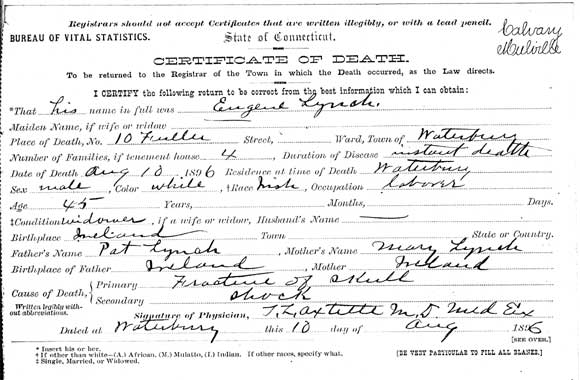 Registrars should not accept Certificates that are written illegibly, or with a lead pencil.
Calvary
BUREAU OF VITAL STATISTICS. State of Connecticut.
CERTIFICATE OF DEATH.
To be returned to the Registrar of the Town in which the Death occurred, as the Law directs.
I CERTIFY the following return to be correct from the best information which I can obtain:
*That his name in full was Eugene Lynch.
Maiden Name, if wife or widow
Place of Death, No. 10 Fuller Street, Ward, Town of Waterbury
Number of Families, if tenement house 4, Duration of Disease instant death
Date of Death Aug 10, 1896 Residence at time of Death Waterbury
Sex male, Color white, †Race Irish, Occupation laborer
Age 45 Years, Months, Days.
‡Condition widower, if a wife or widow, Husband's Name
Birthplace Ireland Town State or Country.
Father's Name Pat Lynch, Mother's Name Mary Lynch
Birthplace of Father Ireland, Mother Ireland
Cause of Death, Primary Fracture of Skull
Secondary Shock
Written legibly without abbreviations.
Signature of Physician, M. D. Med Ex
Dated at Waterbury this 10 day of Aug 1896
[SEE OVER.]
* Insert his or her.
† If other than white—(A.) African, (M.) Mulatto, (I.) Indian. If other races, specify what.
‡ Single, Married, or Widowed.
[BE VERY PARTICULAR TO FILL ALL BLANKS.]